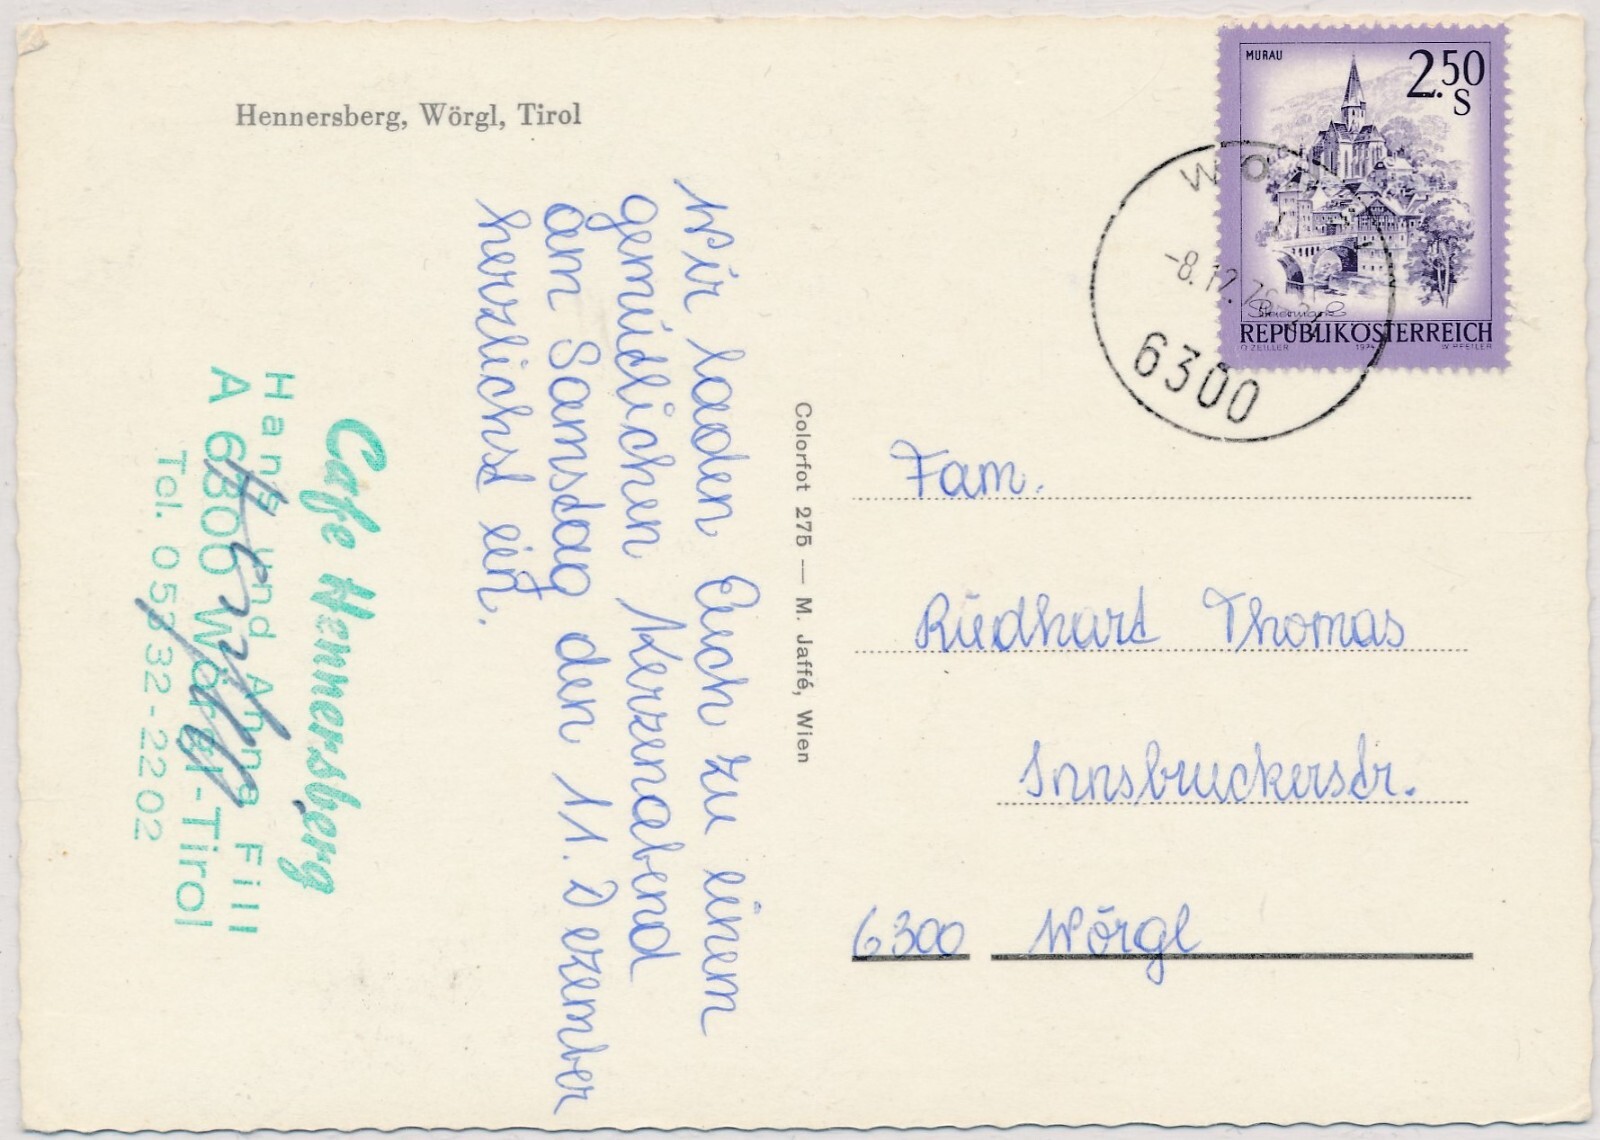 Hennersberg, Wörgl, Tirol
Wir laden Euch zu einem
gemüdlichen Kerzenabend
am Samstag den 11. Dezember
herzlichst ein.
Cafe Hennersberg
Hans und Anna Fill
A 6300 Wörgl-Tirol
Tel. 05332-2202
Colorfot 275 — M. Jaffé, Wien
MURAU
2.50
S
Steiermark
REPUBLIK ÖSTERREICH
O. ZEILLER 1974 W. PFEILER
-8.12.76
6300
Fam.
Riedhart Thomas
Innsbruckerstr.
6300 Wörgl